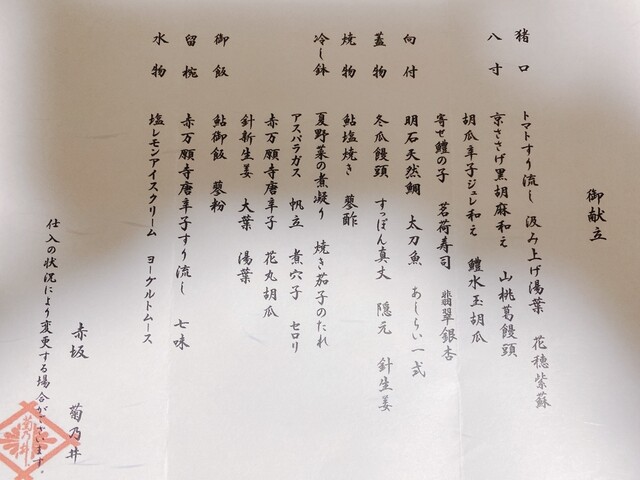 御献立
猪口 トマトすり流し 汲み上げ湯葉 花穂紫蘇
八寸 京ささげ黒胡麻和え 山桃葛饅頭
胡瓜辛子ジュレ和え 鱧水玉胡瓜
寄せ鱧の子 茗荷寿司 翡翠銀杏
向付 明石天然鯛 太刀魚 あしらい一式
蓋物 冬瓜饅頭 すっぽん真丈 隠元 針生姜
焼物 鮎塩焼き 蓼酢
冷し鉢 夏野菜の煮凝り 焼き茄子のたれ
アスパラガス 帆立 煮穴子 セロリ
赤万願寺唐辛子 花丸胡瓜
針新生姜 大葉 湯葉
御飯 鮎御飯 蓼粉
留椀 赤万願寺唐辛子すり流し 七味
水物 塩レモンアイスクリーム ヨーグルトムース
赤坂 菊乃井
仕入の状況により変更する場合がございます。
菊乃井